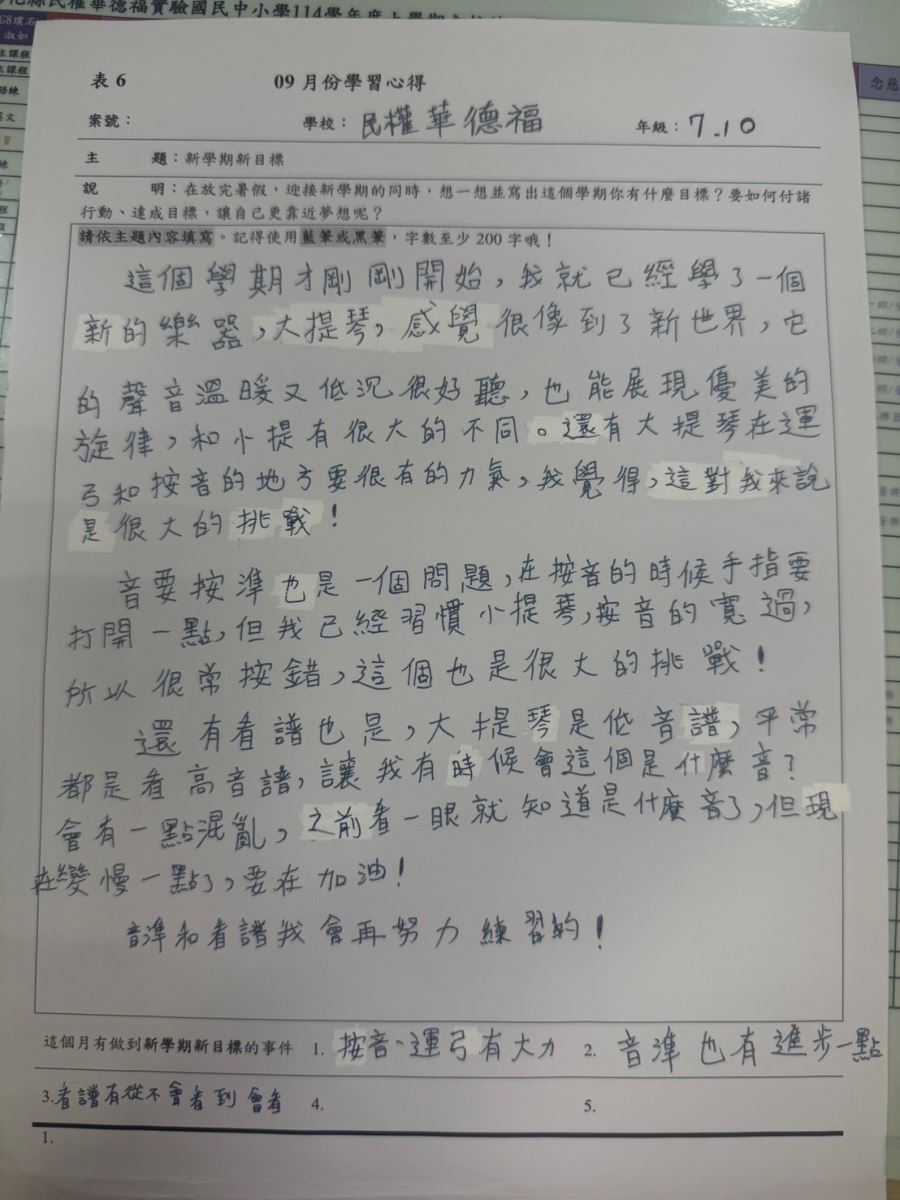 民權華德福實驗國民中小學114學年度上學期
G8璞石
淑如
主課程
主課程
念慈
表 6
09 月份學習心得
案號：
學校：民權華德福
年級：7.10
主 題：新學期新目標
說 明：在放完暑假，迎接新學期的同時，想一想並寫出這個學期你有什麼目標？要如何付諸
行動、達成目標，讓自己更靠近夢想呢？
請依主題內容填寫。記得使用藍筆或黑筆，字數至少 200 字哦！
這個學期才剛剛開始，我就已經學了一個
新的樂器，大提琴，感覺很像到了新世界，它
的聲音溫暖又低沉很好聽，也能展現優美的
旋律，和小提有很大的不同。還有大提琴在運
弓和按音的地方要很有的力氣，我覺得，這對我來說
是很大的挑戰！
音要按準也是一個問題，在按音的時候手指要
打開一點，但我已經習慣小提琴，按音的寬過，
所以很常按錯，這個也是很大的挑戰！
還有看譜也是，大提琴是低音譜，平常
都是看高音譜，讓我有時候會這個是什麼音？
會有一點混亂，之前看一眼就知道是什麼音了，但現
在變慢一點了，要在加油！
音準和看譜我會再努力練習的！
這個月有做到新學期新目標的事件 1. 按音、運弓有大力 2. 音準也有進步一點
3.看譜有從不會看到會看 4. 5.
1.